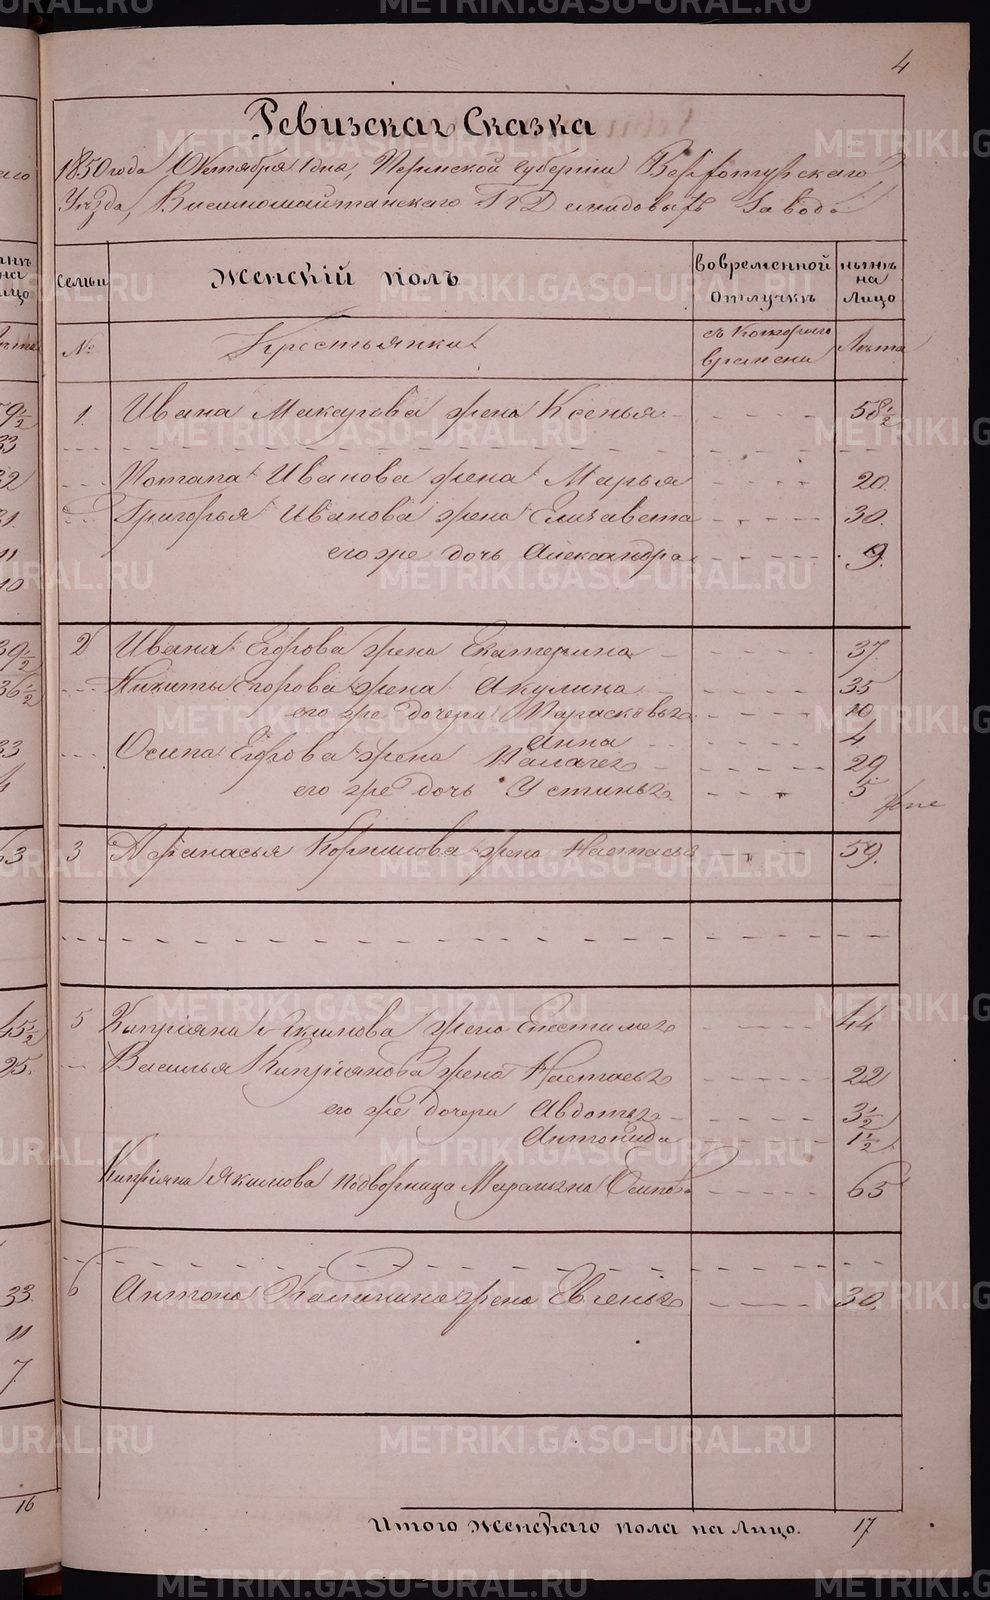 4
Ревизская Сказка
1850 года Октября 1 дня, Пермской Губернии Верхотурского
Уѣзда, Висимошайтанского Г.г. Демидовыхъ Завода
Семьи Женскій полъ вовременной отлучкѣ нынѣ на лицо
№ Крестьянки съ Котораго времени Лѣта
1. Ивана Макарова жена Ксенья 58 1/2
Потапа Иванова жена Марья 20.
Григорья Иванова жена Елизавета 30.
его же дочь Александра 9.
2 Ивана Егорова жена Екатерина 37
Никиты Егорова жена Акулина 35
его же дочери Парасковья 10
Анна 4
Осипа Егорова жена Палагея 29.
его же дочь Устинья 5
3 Афанасья Корнилова жена Настасья 59.
5 Кипріяна Акимова жена 44
Василья Кипріянова жена Настасья 22
его же дочери Авдотья 3 1/2
Антонида 1 1/2
Кипріяна Якимова подворница Марамьяна Осипова 65
6 Антона Калинина жена Евгенья 30.
Итого Женскаго пола на Лицо. 17
59 1/2
33
32
31.
11
10
39 1/2
36 1/2
33
4
63
45 1/2
25.
33.
11
7.
16
METRIKI.GASO-URAL.RU